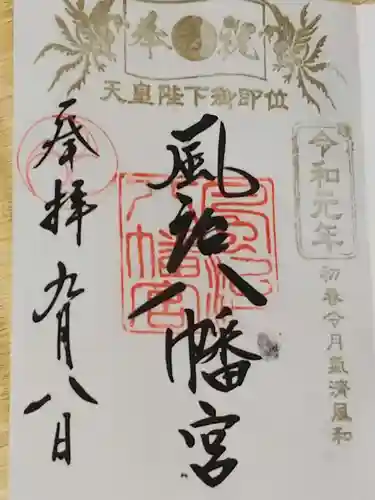 奉祝
天皇陛下御即位
令和元年
初春令月氣淑風和
風治八幡宮
奉拝
九月八日